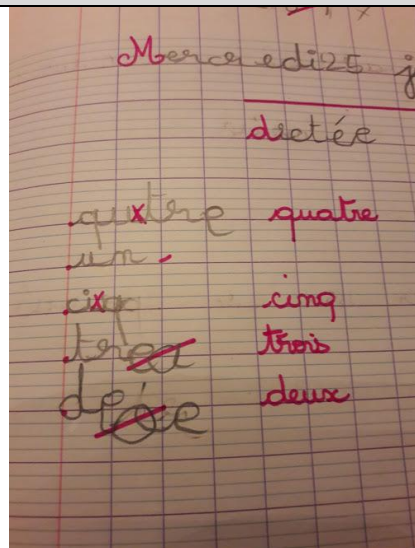 Mercredi 25 j
dictée
quxtre quatre
un
cixq cinq
trea trois
deux